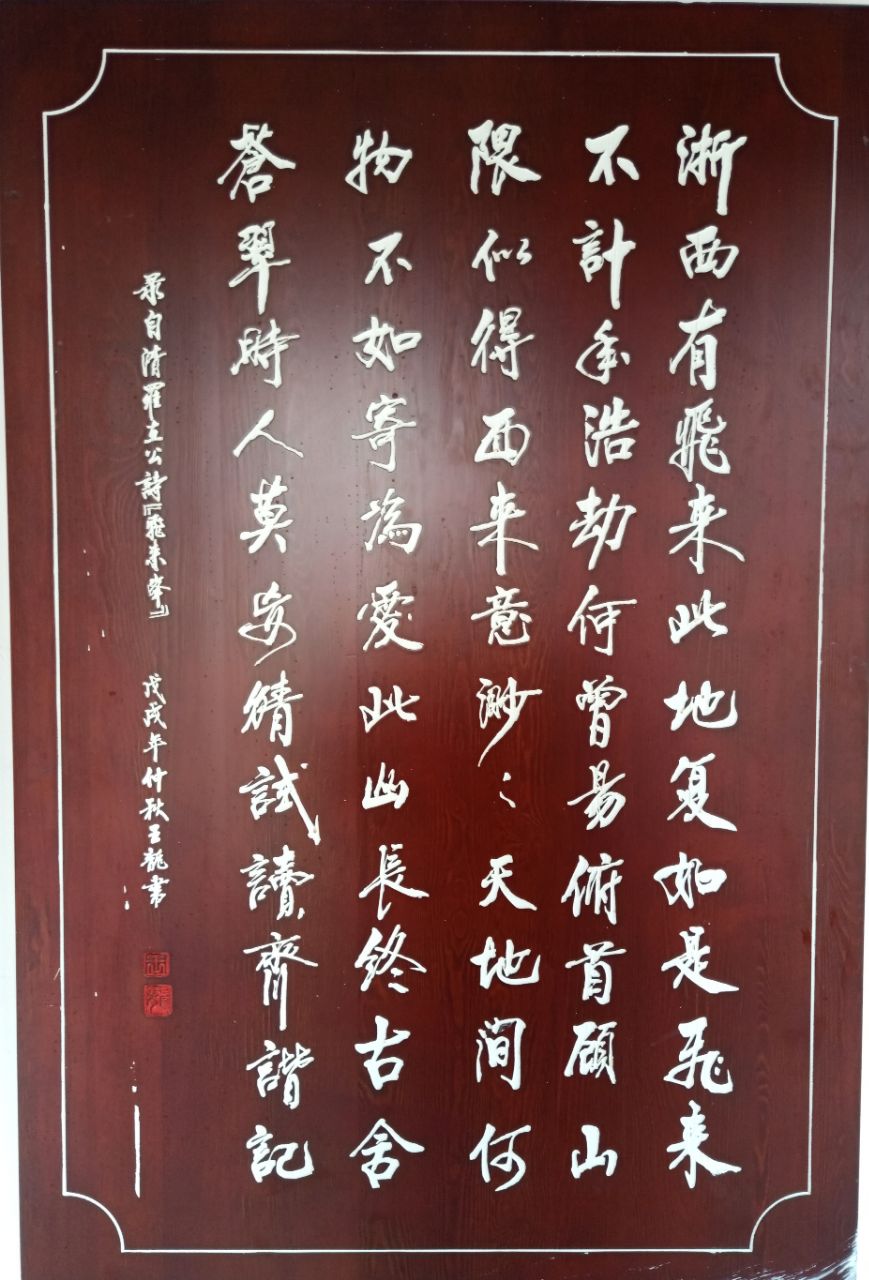 浙西有飛来此地复如是飛来
不計年浩劫何曾易俯首顧山
隈似得西来意渺〻天地間何
物不如寄為愛此幽長終古舍
蒼翠時人莫妄猜試讀齊諧記
录自羅立公詩『飛来峯』 戊戌年仲秋王龍書